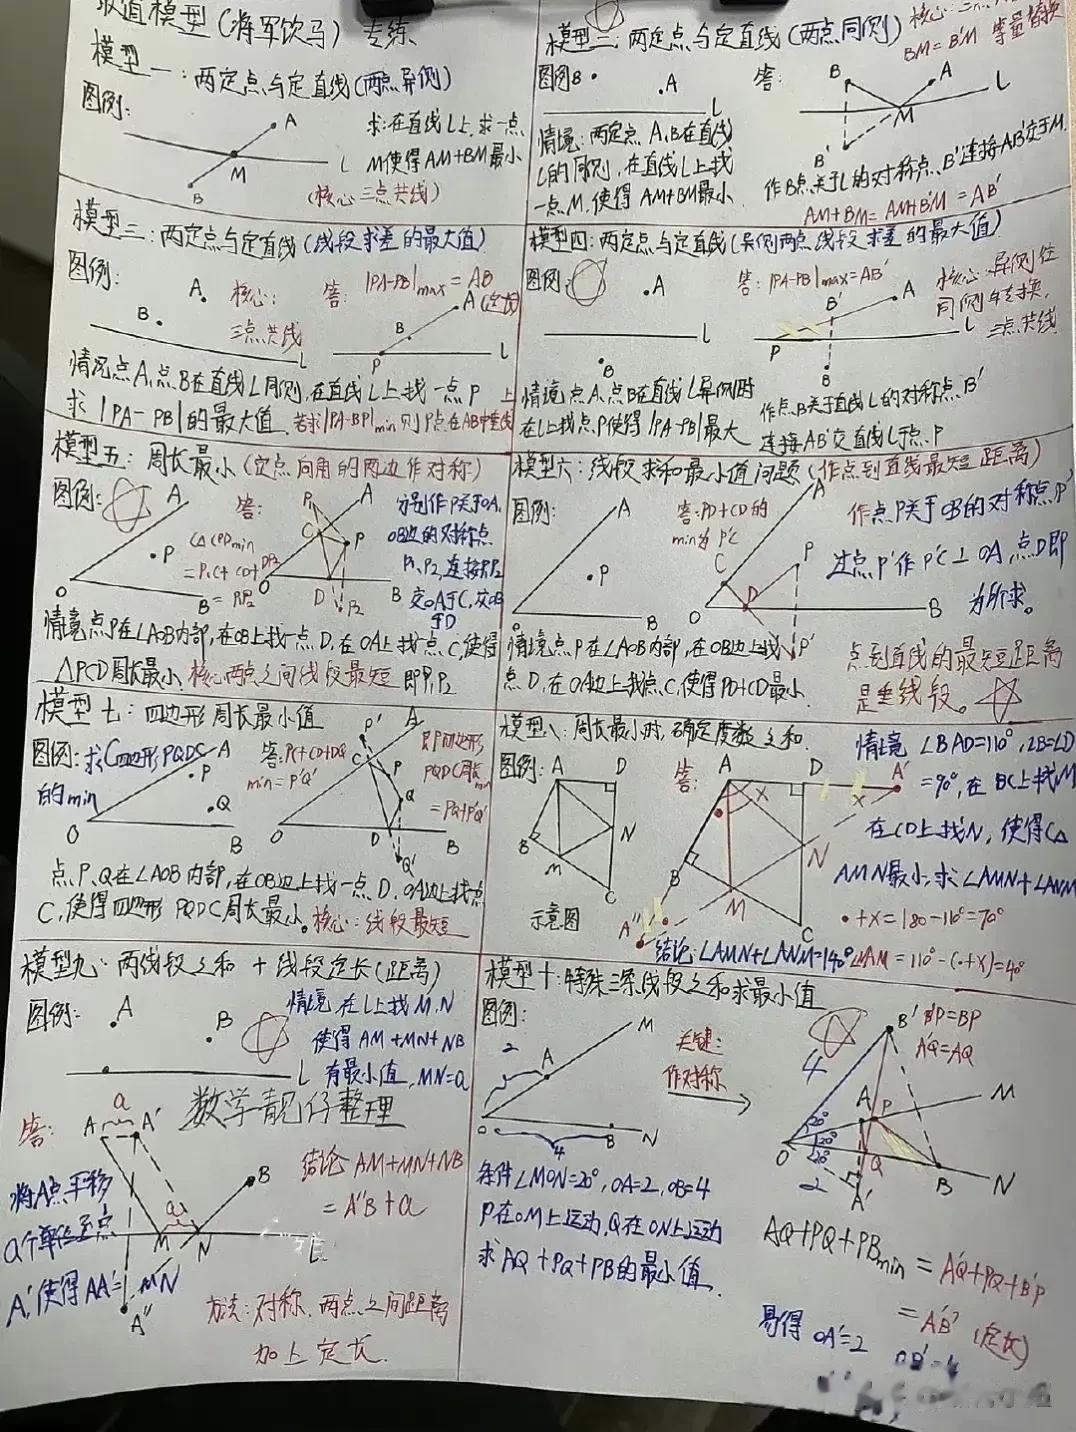 模型(将军饮马)专练
模型一:两定点与定直线(两点异侧)
图例:
A
L
M
B
求:在直线L上,求一点
M使得AM+BM最小
(核心三点共线)
模型二:两定点与定直线(两点同侧)
BM=B'M 等量替换
图例B
A
L
答:
B
A
L
M
B'
情境:两定点A、B在直线
L的同侧,在直线L上找
一点M,使得AM+BM最小
作B点关于L的对称点B'连接AB'交于M.
AM+BM=AM+B'M=AB'
模型三:两定点与定直线(线段求差的最大值)
图例:
A
B
L
核心:
三点共线
答:
|PA-PB|max=AB
(定长)
A
B
P
L
情况点A、点B在直线L同侧,在直线L上找一点P
求|PA-PB|的最大值.若求|PA-BP|min则P点在AB中垂线上
模型四:两定点与定直线(异侧两点线段求差的最大值)
图例:
A
L
B
答:|PA-PB|max=AB'
B'
A
P
L
B
核心:异侧往
同侧转换,
三点共线
情境点A、点B在直线L异侧时
在L上找点P使得|PA-PB|最大
作点B关于直线L的对称点B'
连接AB'交直线L于点P
模型五:周长最小(定点向角的两边作对称)
图例:
A
P
O
B
C△CPDmin
=P1C+CD+DP2
=P1P2
答:
P1
A
C
P
O
D
P2
B
分别作P关于OA,
OB边的对称点
P1、P2,连接P1P2
交OA于C,交OB
于D
情境点P在∠AOB内部,在OB上找一点D,在OA上找点C,使得
△PCD周长最小.核心两点之间线段最短即P1P2
模型六:线段求和最小值问题(作点到直线最短距离)
图例:
A
P
O
B
答:PD+CD的
min为P'C
A
C
P
D
O
B
P'
作点P关于OB的对称点P'
过点P'作P'C⊥OA,点D即
为所求。
情境点P在∠AOB内部,在OB边上找
点D,在OA边上找点C,使得PD+CD最小.
点到直线的最短距离
是垂线段。
模型七:四边形周长最小值
图例:求C四边形PQDC
的min
A
P
Q
O
B
答:PC+CD+DQ
min=P'Q'
P'
A
C
P
Q
O
D
B
Q'
即四边形
PQDC周长min
=PQ+P'Q'
点P、Q在∠AOB内部,在OB边上找一点D,OA边上找点
C,使得四边形PQDC周长最小。核心:线段最短
模型八:周长最小时,确定度数之和.
图例:
A
D
B
N
M
C
示意图
答:
A
D
A'
B
N
M
C
A''
情境∠BAD=110°,∠B=∠D
=90°,在BC上找M
在CD上找N,使得C△
AMN最小,求∠AMN+∠ANM
•+×=180-110°=70°
结论:∠AMN+∠ANM=140°∠MAN=110°-(•+×)=40°
模型九:两线段之和+线段定长(距离)
图例:
A
B
L
情境 在L上找M、N
使得AM+MN+NB
有最小值,MN=a
数学靓仔整理
答:
a
A
A'
a
B
M
N
L
A''
将A点平移
a个单位至点
A',使得AA'=MN
结论AM+MN+NB
=A''B+a
方法:对称、两点之间距离
加上定长.
模型十:特殊三条线段之和求最小值
图例:
M
2
A
O
B
N
4
关键:
作对称
B'
4
M
A
P
20°
20°
20°
O
Q
2
B
N
A'
B'P=BP
A'Q=AQ
条件∠MON=20°,OA=2,OB=4
P在OM上运动,Q在ON上运动
求AQ+PQ+PB的最小值.
AQ+PQ+PBmin=A'Q+PQ+B'P
=A'B'(定长)
易得OA'=2 OB'=4